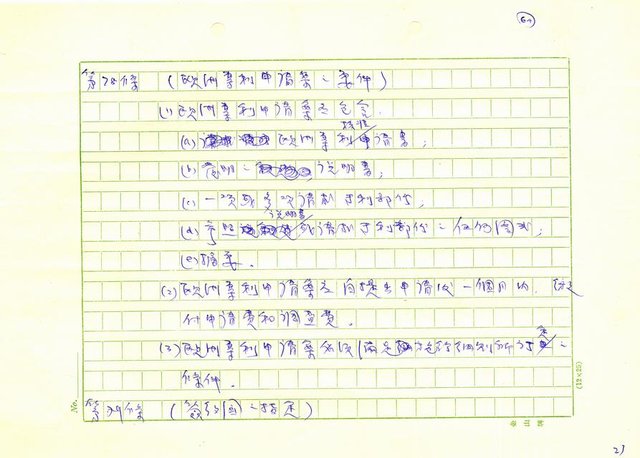 第78條 (歐洲專利申請案之要件)
(1) 歐洲專利申請案應包含
(a) 歐洲專利申請書;
(b) 發明之說明書;
(c) 一次或多次請求專利部份;
(d) 參照說明書或請求專利部份之任何圖式;
(e) 摘要.
(2) 歐洲專利申請案應自提出申請後一個月內
付申請費和調查費.
(3) 歐洲專利申請案必須滿足施行細則所訂之
條件.
第79條 (簽約國之指定)
No.
(12×25)
27